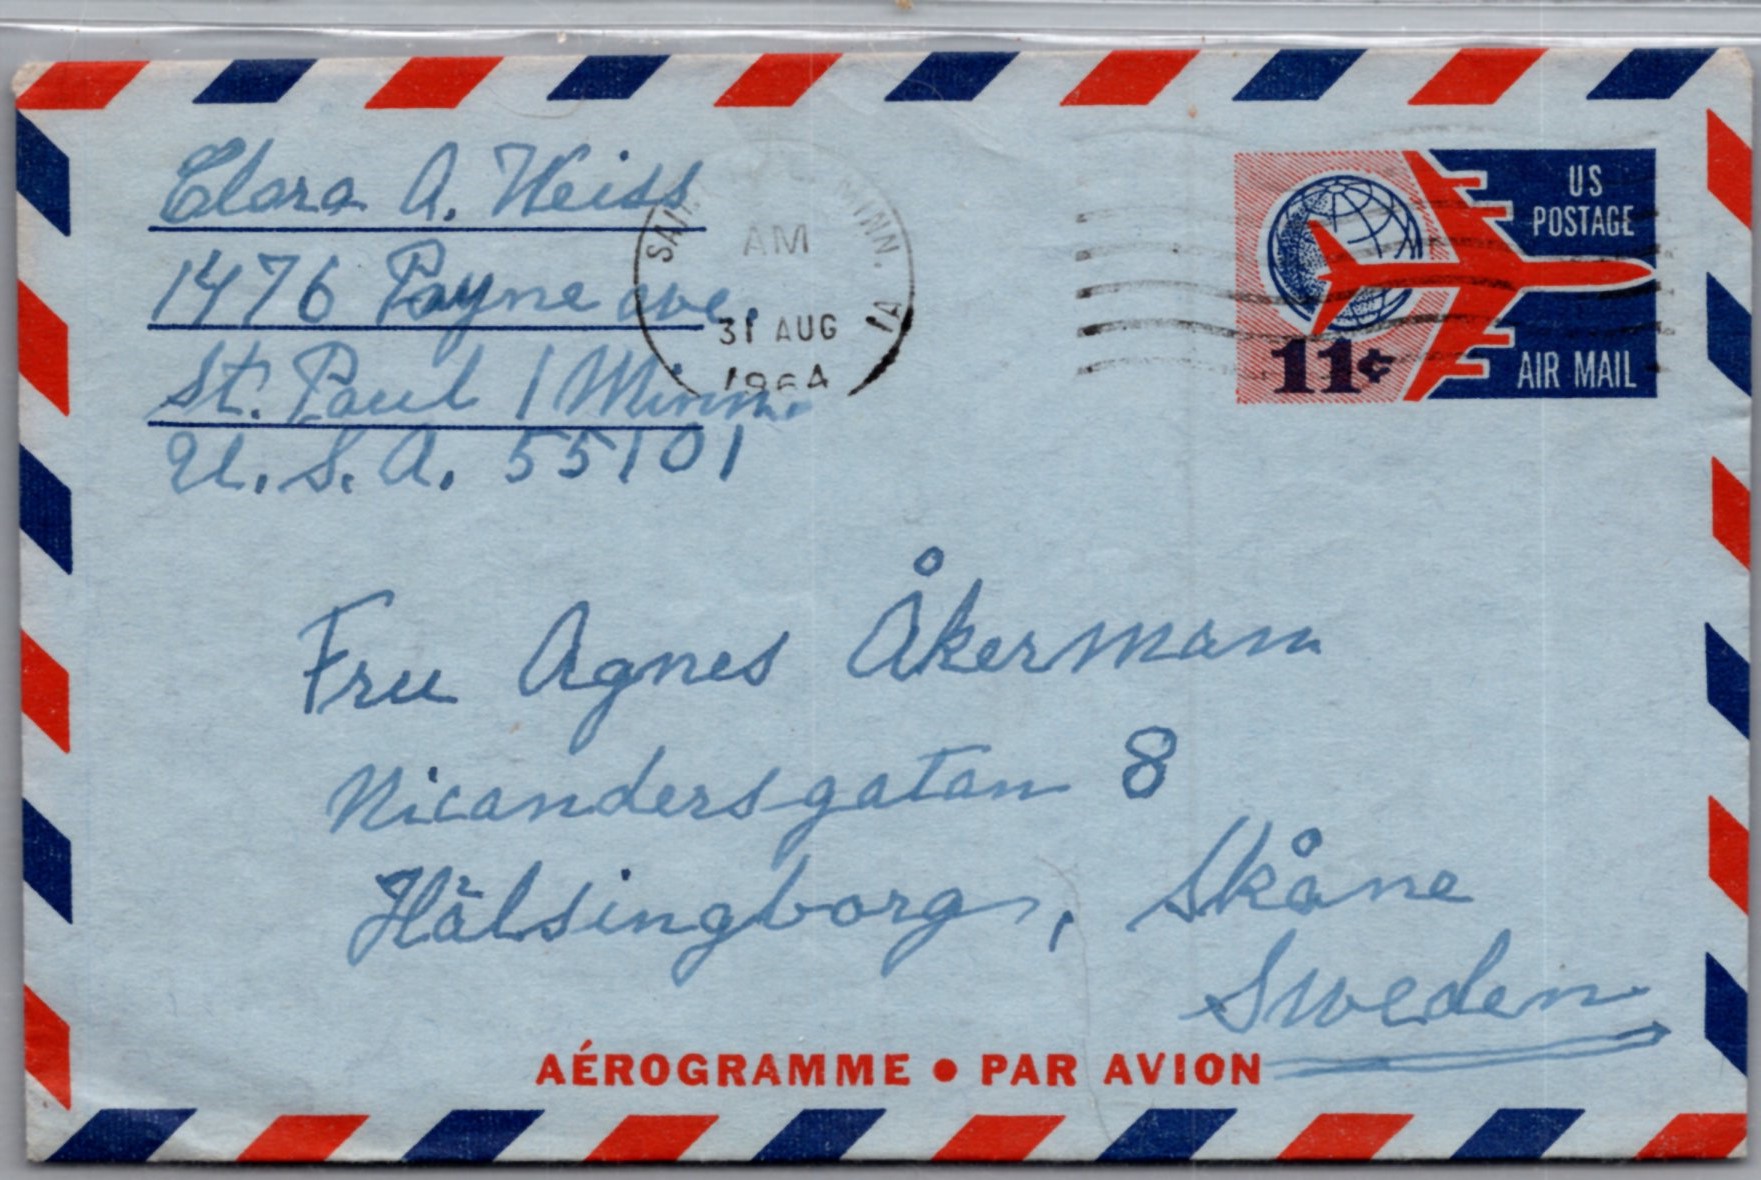 Clara A. Weiss
1476 Payne ave.
St. Paul 1 Minn.
U.S.A. 55101
MINN.
AM
31 AUG
1964
1A
US
POSTAGE
11¢
AIR MAIL
Fru Agnes Åkerman
Nicandersgatan 8
Hälsingborg, Skåne
Sweden
AÉROGRAMME • PAR AVION